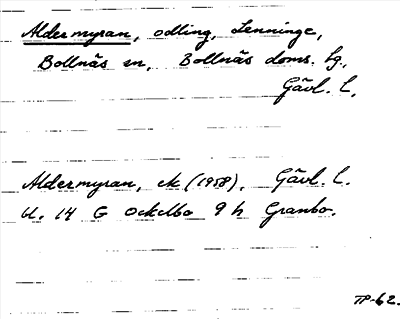 Aldermyran, odling, Lenninge,
Bollnäs sn, Bollnäs doms. lg.,
Gävl. l.
Aldermyran, ek (1958), Gävl. l.
bl. 14 G Ockelbo 9 h Granbo.
TP-62.